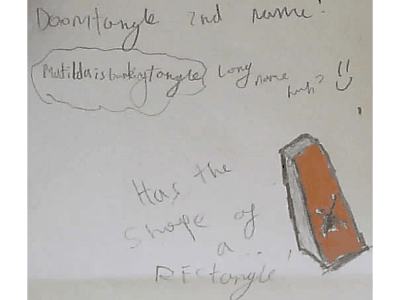 Doomtangle 2nd name!
Matildaisbunkingtangle Long
name
huh?
Has the
shape of
a...
REctangle!